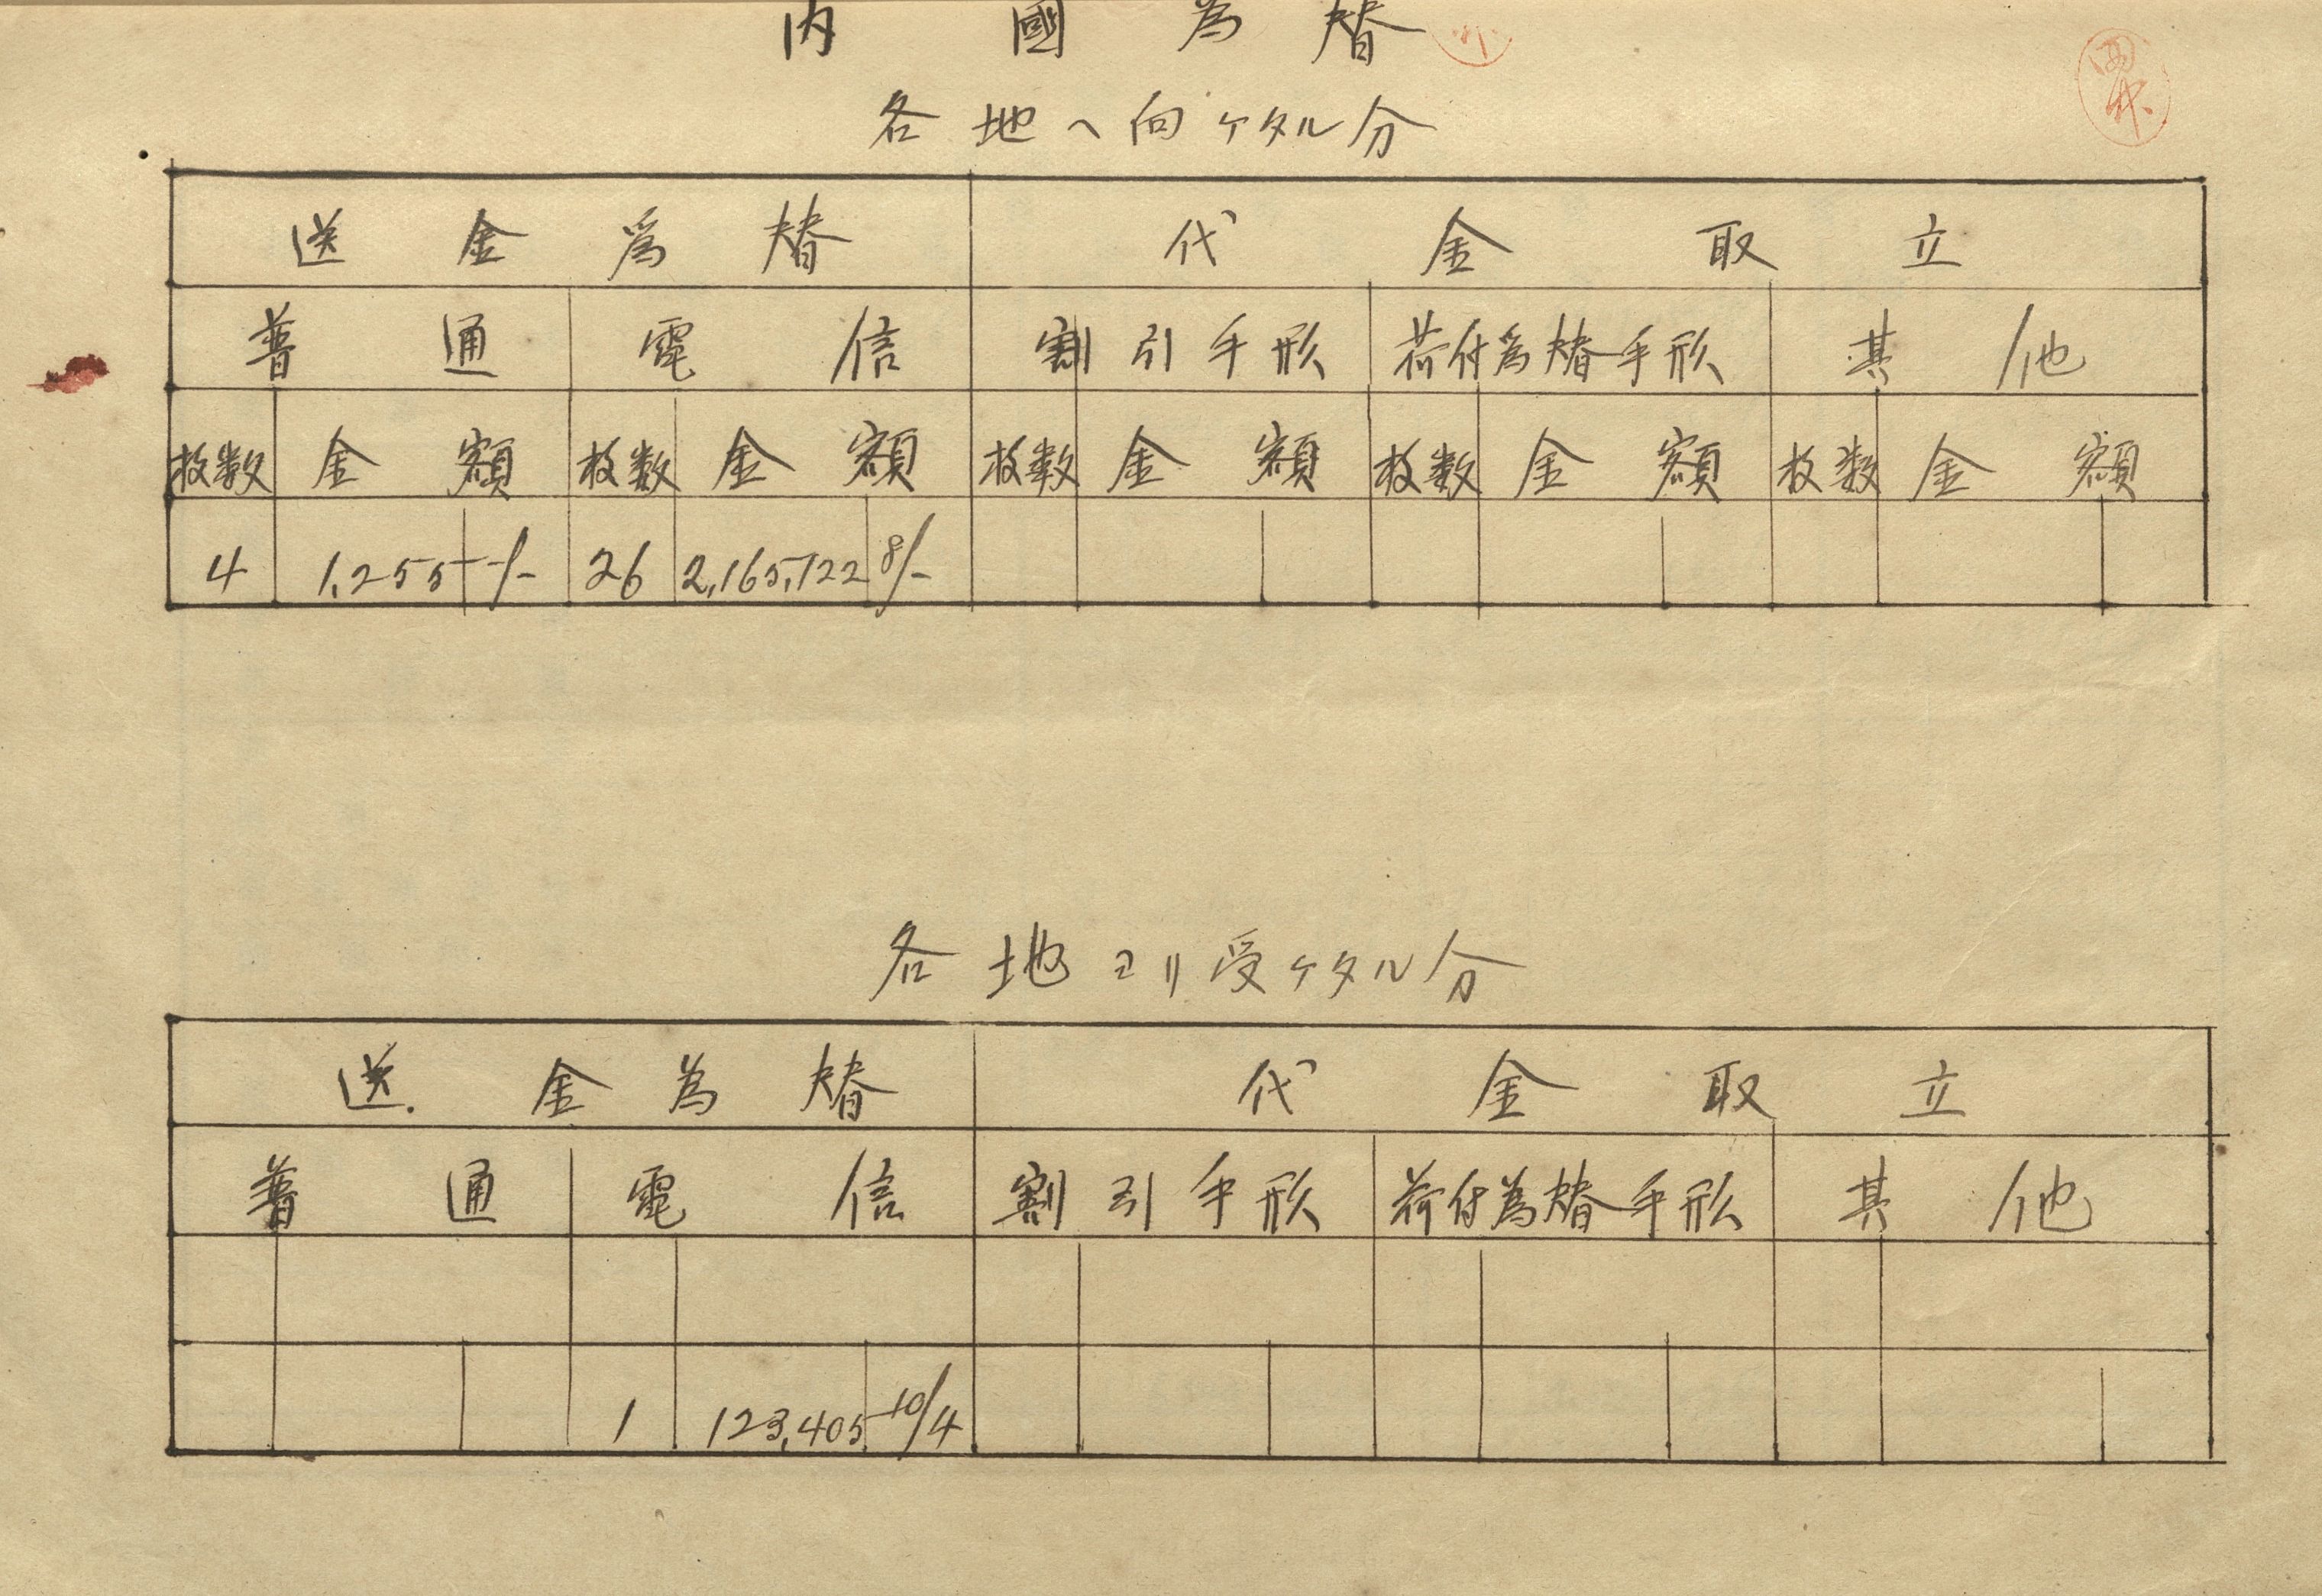 内國為替
各地へ向ケタル分
送金爲替 代金取立
普通 電信 割引手形 荷付為替手形 其他
枚数 金額 枚数 金額 枚数 金額 枚数 金額 枚数 金額
4 1,255 -/- 26 2,165,722 8/-
各地ヨリ受ケタル分
送金為替 代金取立
普通 電信 割引手形 荷付為替手形 其他
1 123,405 10/4